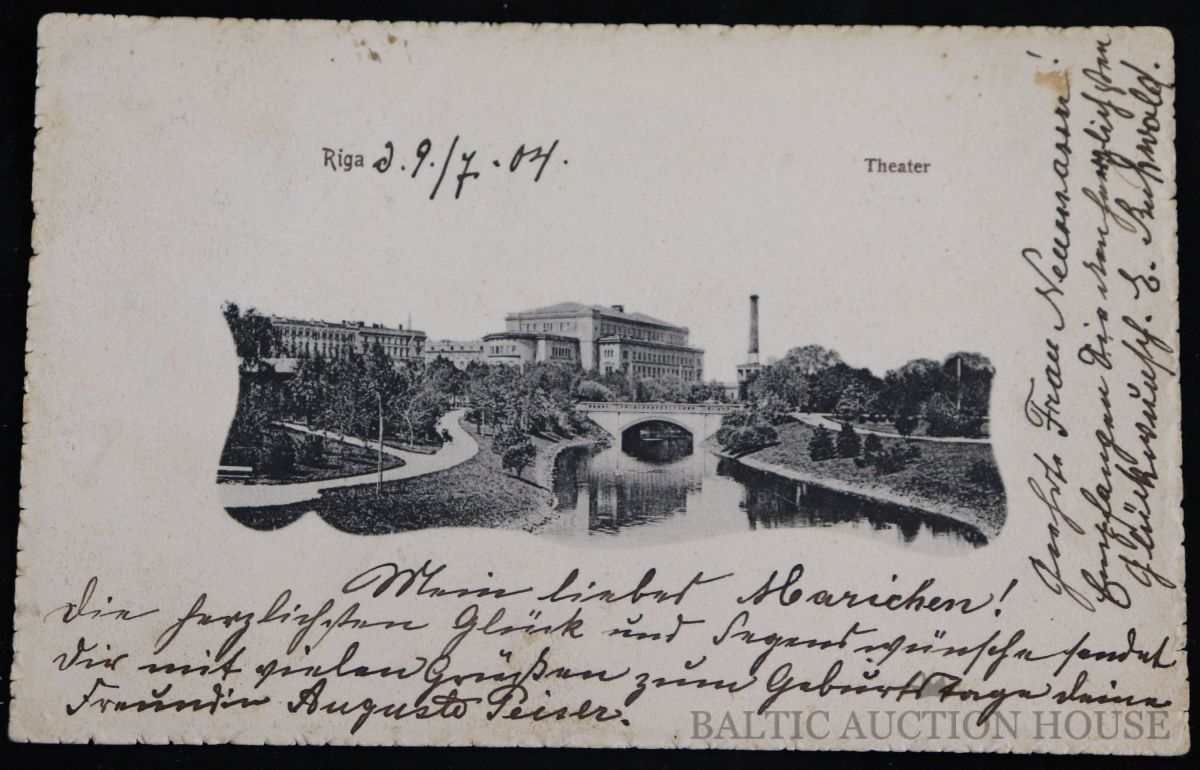 Riga d. 9./7. 04.
Theater
Mein liebes Marichen!
Die herzlichsten Glück und Segenswünsche sendet
Dir mit vielen Grüßen zum Geburtstage deine
Freundin Auguste Peiser.
Geehrte Frau Neumann!
Empfangen Sie den herzlichsten
Glückwunsch. E. Buchwald.
BALTIC AUCTION HOUSE